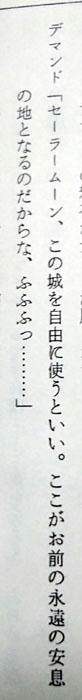 デマンド「セーラームーン、この城を自由に使うといい。ここがお前の永遠の安息
の地となるのだからな、ふふふっ…………」